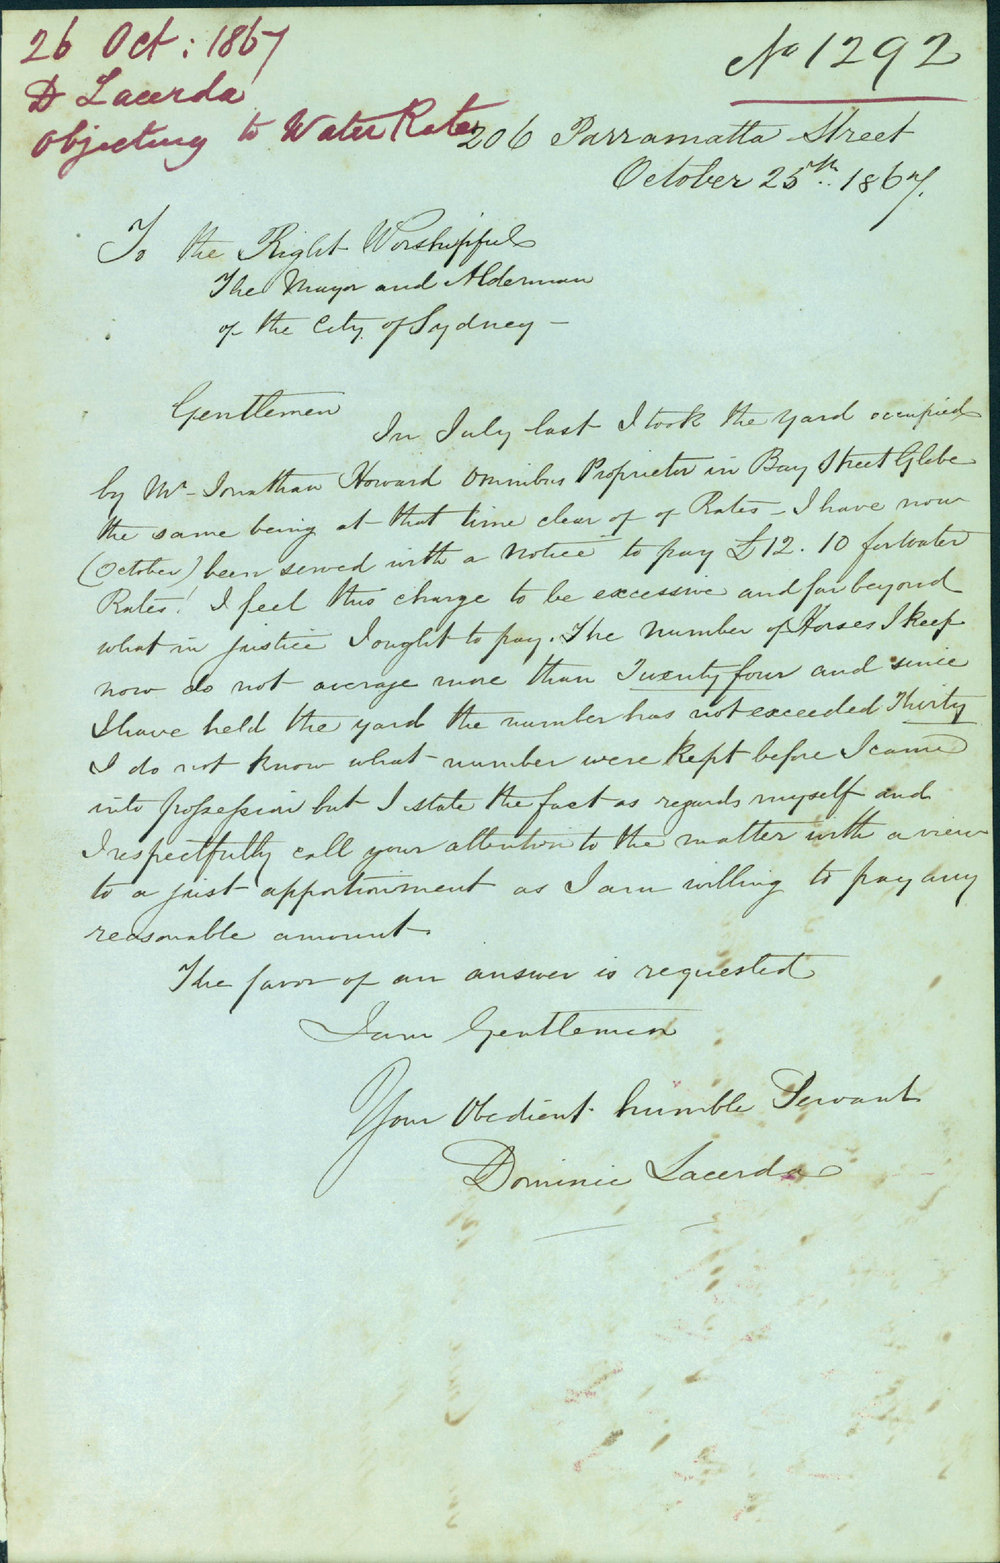 26 Oct: 1867
D Lacerda
Objecting to Water Rates
No 1292
206 Parramatta Street
October 25th. 1867.
To the Right Worshipful
The Mayor and Alderman
of the City of Sydney -
Gentlemen
In July last I took the yard occupied
by Mr Jonathan Howard Omnibus Proprietor in Bay Street Glebe
the same being at that time clear of of Rates - I have now
(October) been served with a Notice to pay £12.10 for Water
Rates! I feel this charge to be excessive and far beyond
what in justice I ought to pay. The Number of Horses I keep
now do not average more than Twenty four and since
I have held the yard the number has not exceeded Thirty
I do not know what number were kept before I came
into possession but I state the fact as regards myself and
I respectfully call your attention to the matter with a view
to a just apportionment as I am willing to pay any
reasonable amount.
The favor of an answer is requested
I am Gentlemen
Your Obedient humble Servant
Dominic Lacerda